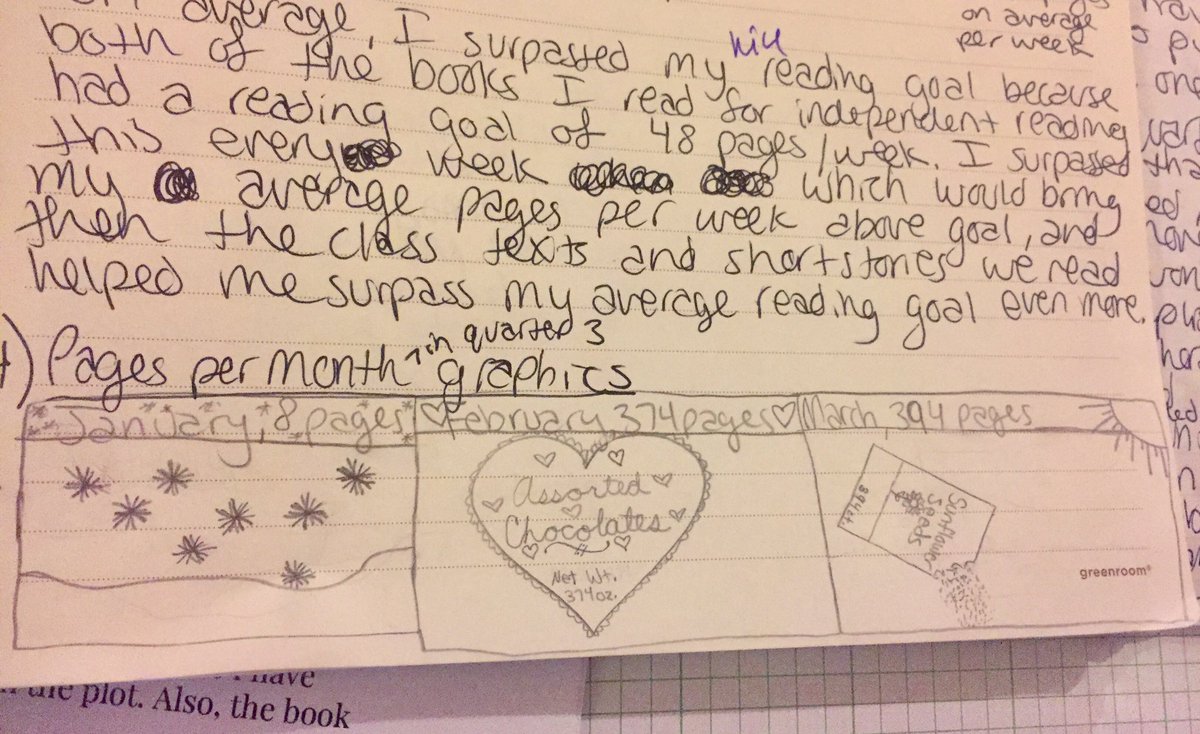 average, I surpasted my nice reading goal because
on average
per week
both of the books I read for independent reading
had a reading goal of 48 pages/week. I surpassed
this every week which would bring
my average pages per week above goal, and
then the class texts and short stories we read
helped me surpass my average reading goal even more.
Pages per month in quarter 3 graphics
January, 8 pages
February, 374 pages
March, 394 pages
Assorted
Chocolates
Net Wt.
374 oz.
Sunflower
Seeds
394 ct.
greenroom®
have
the plot. Also, the book